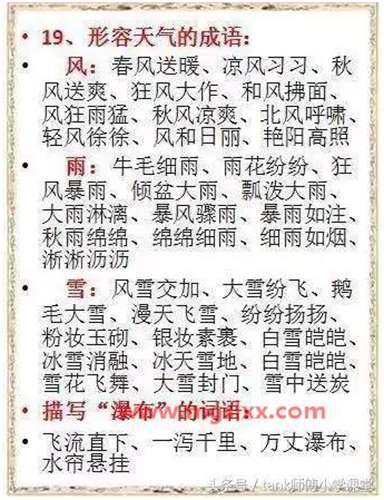 19、形容天气的成语：
风：春风送暖、凉风习习、秋
风送爽、狂风大作、和风拂面、
风狂雨猛、秋风凉爽、北风呼啸、
轻风徐徐、风和日丽、艳阳高照
雨：牛毛细雨、雨花纷纷、狂
风暴雨、倾盆大雨、瓢泼大雨、
大雨淋漓、暴风骤雨、暴雨如注、
秋雨绵绵、绵绵细雨、细雨如烟、
淅淅沥沥
雪：风雪交加、大雪纷飞、鹅
毛大雪、漫天飞雪、纷纷扬扬、
粉妆玉砌、银妆素裹、白雪皑皑、
冰雪消融、冰天雪地、白雪皑皑、
雪花飞舞、大雪封门、雪中送炭
描写“瀑布”的词语：
飞流直下、一泻千里、万丈瀑布、
水帘悬挂
头条号/tank师傅小学课堂